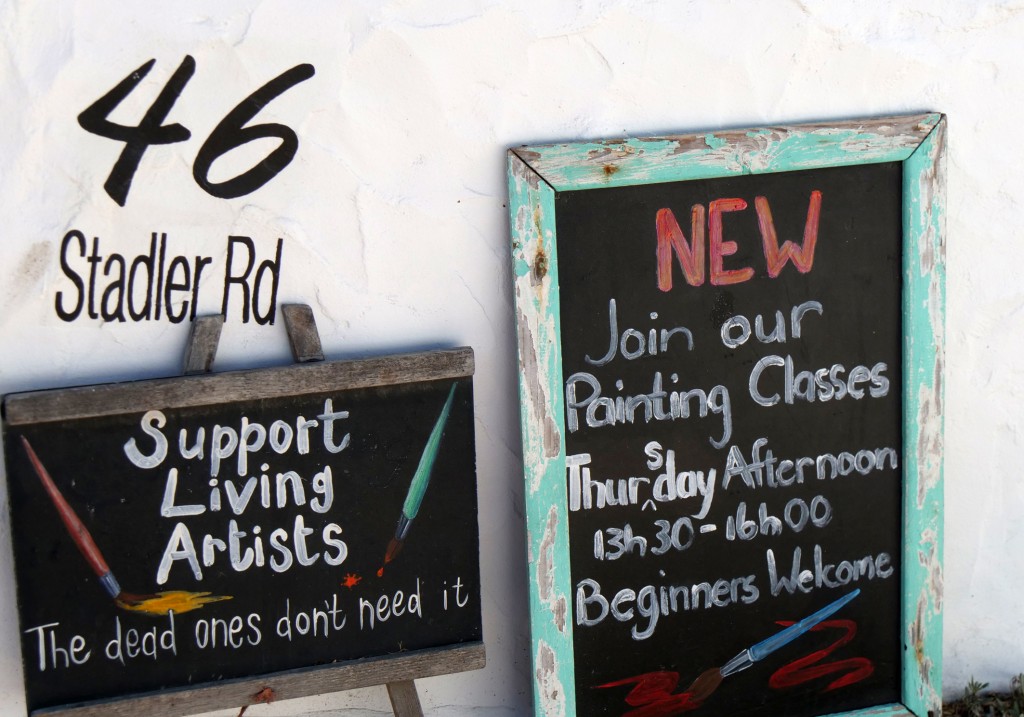 46
Stadler Rd
Support
Living
Artists
The dead ones don't need it
NEW
Join our
Painting Classes
Thursday Afternoon
13h30-16h00
Beginners Welcome